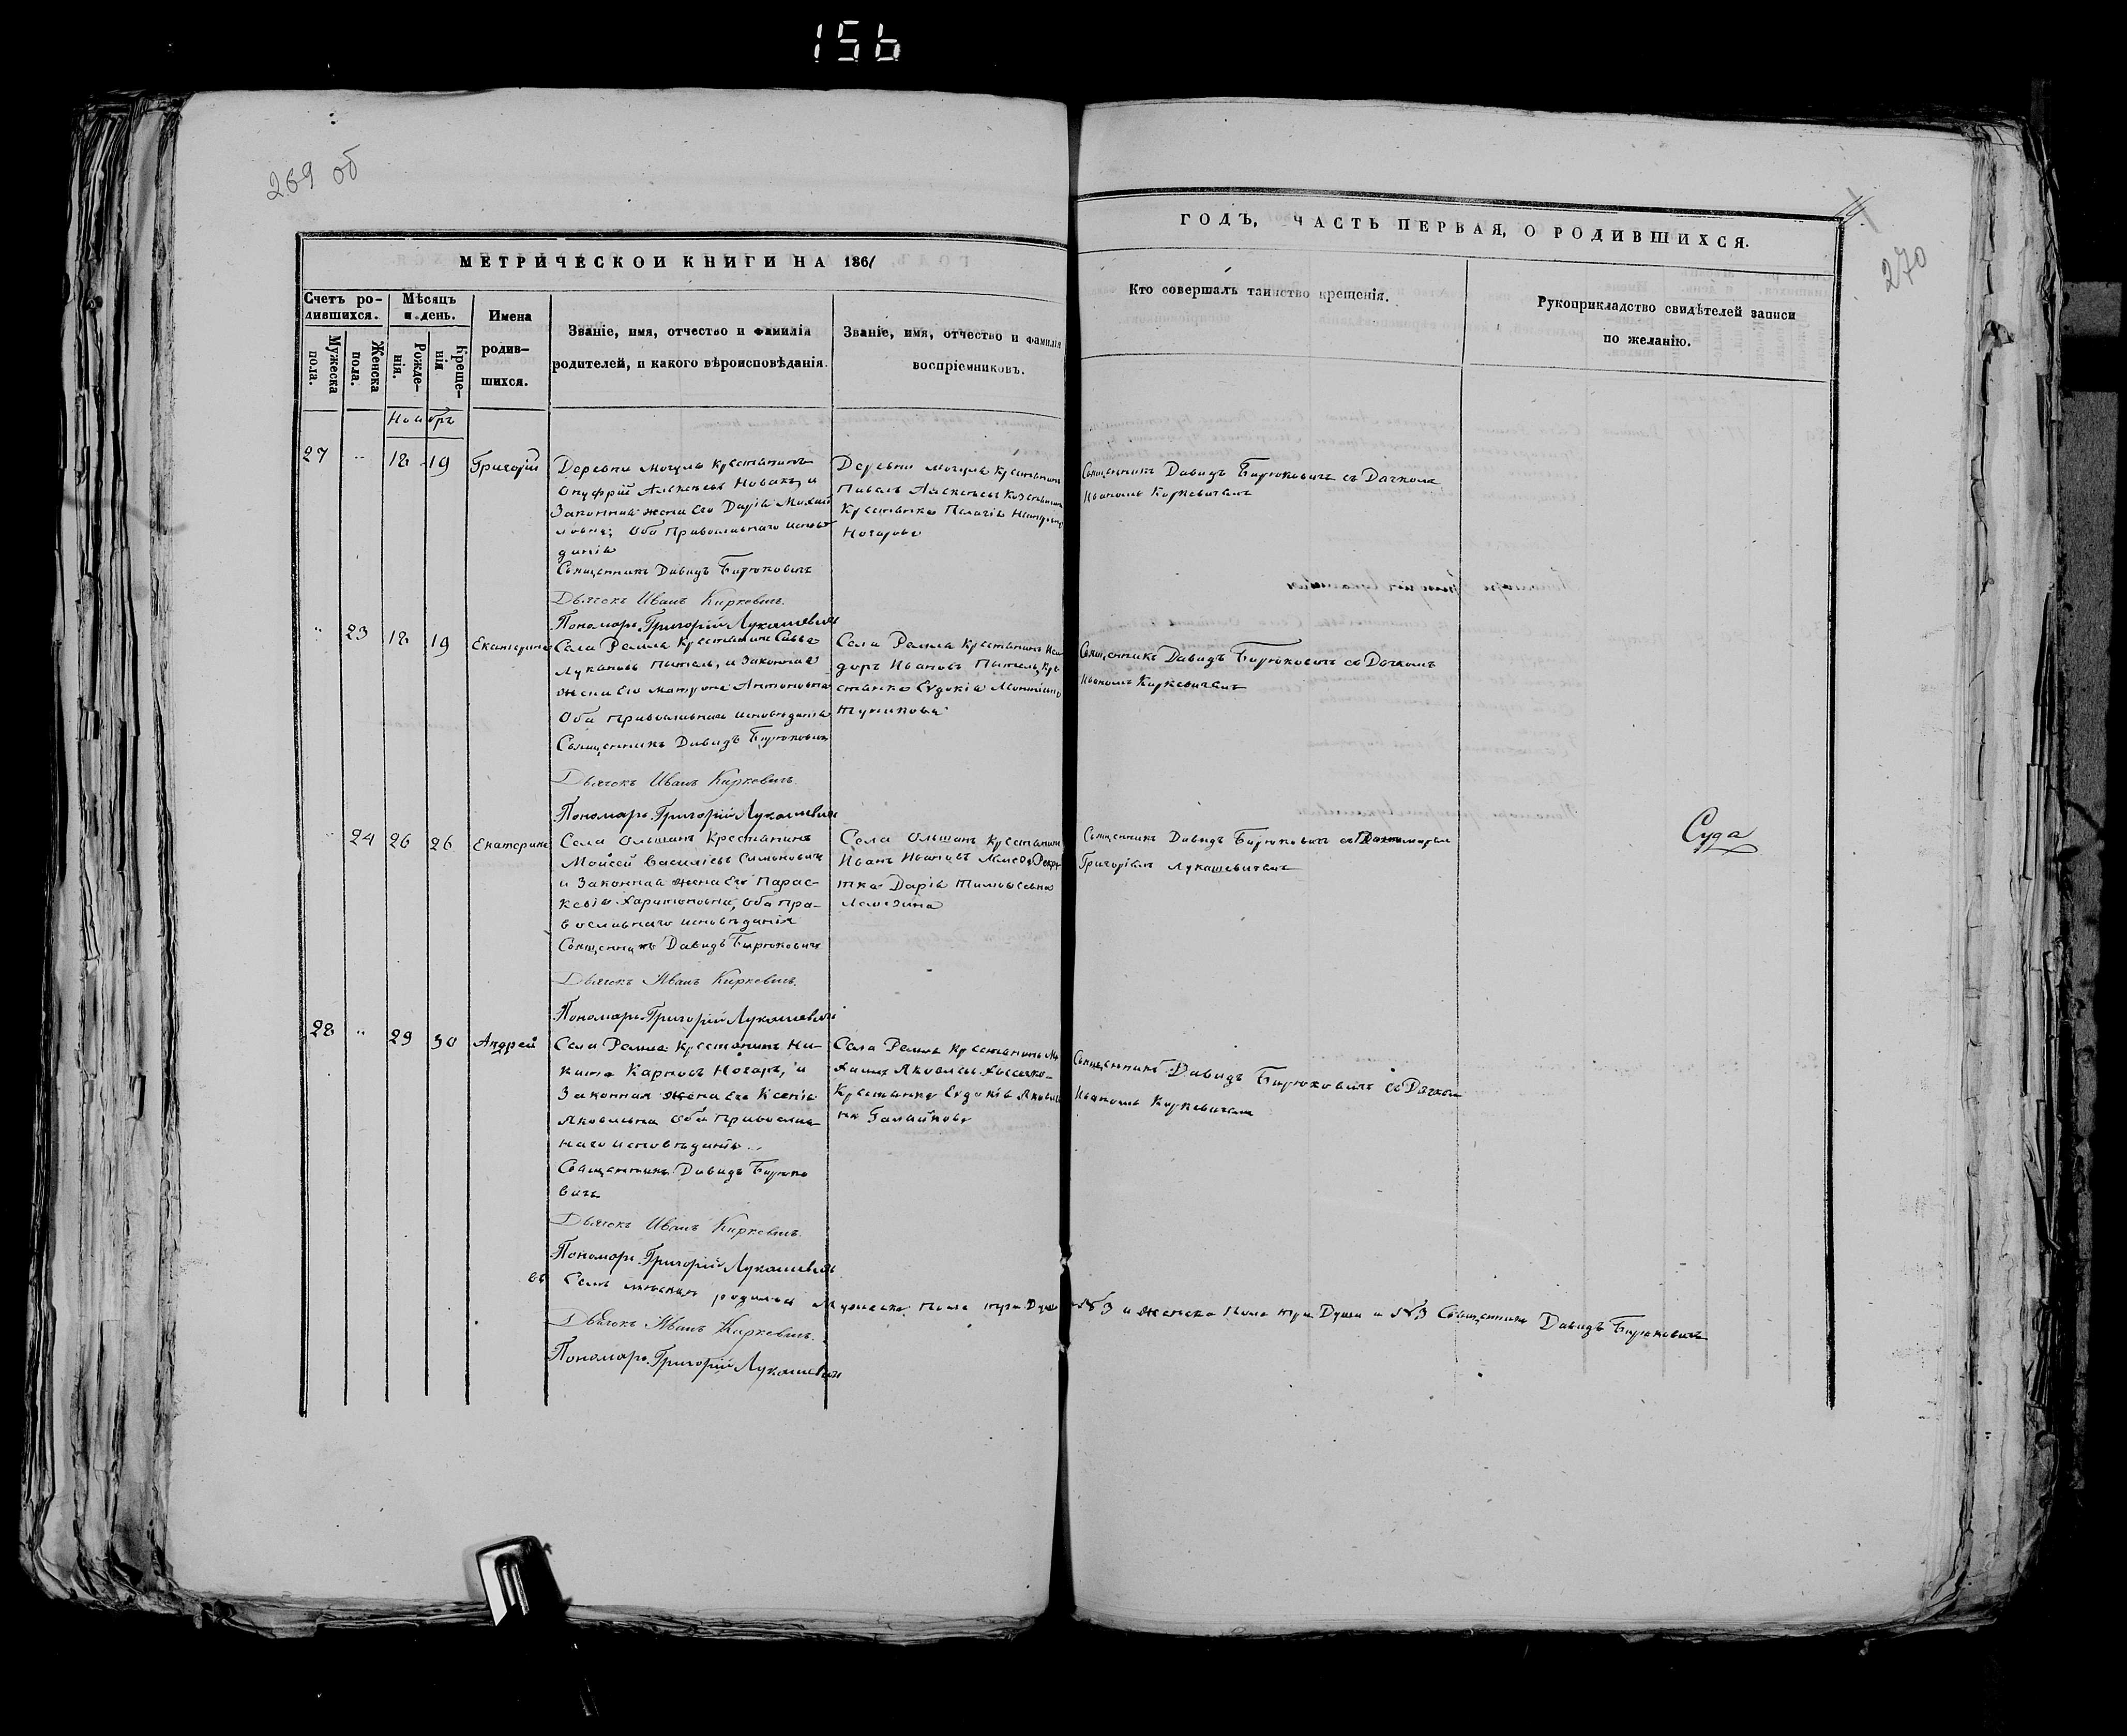 156
269 об
270
МЕТРИЧЕСКОЙ КНИГИ НА 1861
ГОДЪ, ЧАСТЬ ПЕРВАЯ, О РОДИВШИХСЯ.
Счетъ ро-
дившихся.
Мужеска
пола.
Женска
пола.
Мѣсяцъ
и день.
Рожде-
нія.
Креще-
нія
Имена
родив-
шихся.
Званіе, имя, отчество и фамилія
родителей, и какого вѣроисповѣданія.
Званіе, имя, отчество и фамилія
воспріемниковъ.
Кто совершалъ таинство крещенія.
Рукоприкладство свидѣтелей записи
по желанію.
Ноябръ
27 " 18 19 Григорій
Деревни Могуля Крестьянинъ
Онуфрій Алексѣевъ Новакъ, и
Законная жена Его Дарія Михай
ловна; Оба Православнаго исповѣ
данія
Священникъ Давидъ Бирюковичъ
Дьячокъ Иванъ Киркевичъ.
Пономарь Григорій Лукашевичъ
Деревни Могуля Крестьянинъ
Павелъ Алексѣевъ
Крестьянка Пелагія
Ногарова
Священникъ Давидъ Бирюковичъ съ Дячкомъ
Иваномъ Киркевичемъ
" 23 18 19 Екатерина
Села Ремля Крестьянинъ Савва
Лукановъ Пытель, и Законная
жена Его Матрона Антоновна
Оба православнаго исповѣданія
Священникъ Давидъ Бирюковичъ
Дьячокъ Иванъ Киркевичъ.
Пономарь Григорій Лукашевичъ
Села Ремля Крестьянинъ Иси
доръ Ивановъ Пытель, Кре
стьянка Евдокія
Священникъ Давидъ Бирюковичъ съ Дячкомъ
Иваномъ Киркевичемъ
" 24 26 26 Екатерина
Села Ольшанъ Крестьянинъ
Мойсей Василіевъ Симоновичъ
и Законная жена Его Парас-
кевія Харитоновна, оба пра-
вославнаго исповѣданія
Священникъ Давидъ Бирюковичъ
Дьячокъ Иванъ Киркевичъ.
Пономарь Григорій Лукашевичъ
Села Ольшанъ Крестьянинъ
Иванъ Ивановъ
тка Дарія Тимофѣевна
Лемезина
Священникъ Давидъ Бирюковичъ съ Пономаремъ
Григоріемъ Лукашевичемъ
Суда
28 " 29 30 Андрей
Села Ремля Крестьянинъ Ни-
кита Карповъ Ногаръ, и
Законная жена Его Ксенія
Яковлевна Оба православ
наго исповѣданія.
Священникъ Давидъ Бирюко
вичъ
Дьячокъ Иванъ Киркевичъ.
Пономарь Григорій Лукашевичъ
Села Ремля Крестьянинъ Ми
хаилъ Яковлевъ
Крестьянка Евдокія Яковлев
на Галайкова
Священникъ Давидъ Бирюковичъ съ Дячкомъ
Иваномъ Киркевичемъ
въ Семъ мѣсяцѣ родилось Мужеска Пола три Души №3 и женска Пола три Души и №3 Священникъ Давидъ Бирюковичъ
Дьячокъ Иванъ Киркевичъ.
Пономарь Григорій Лукашевичъ